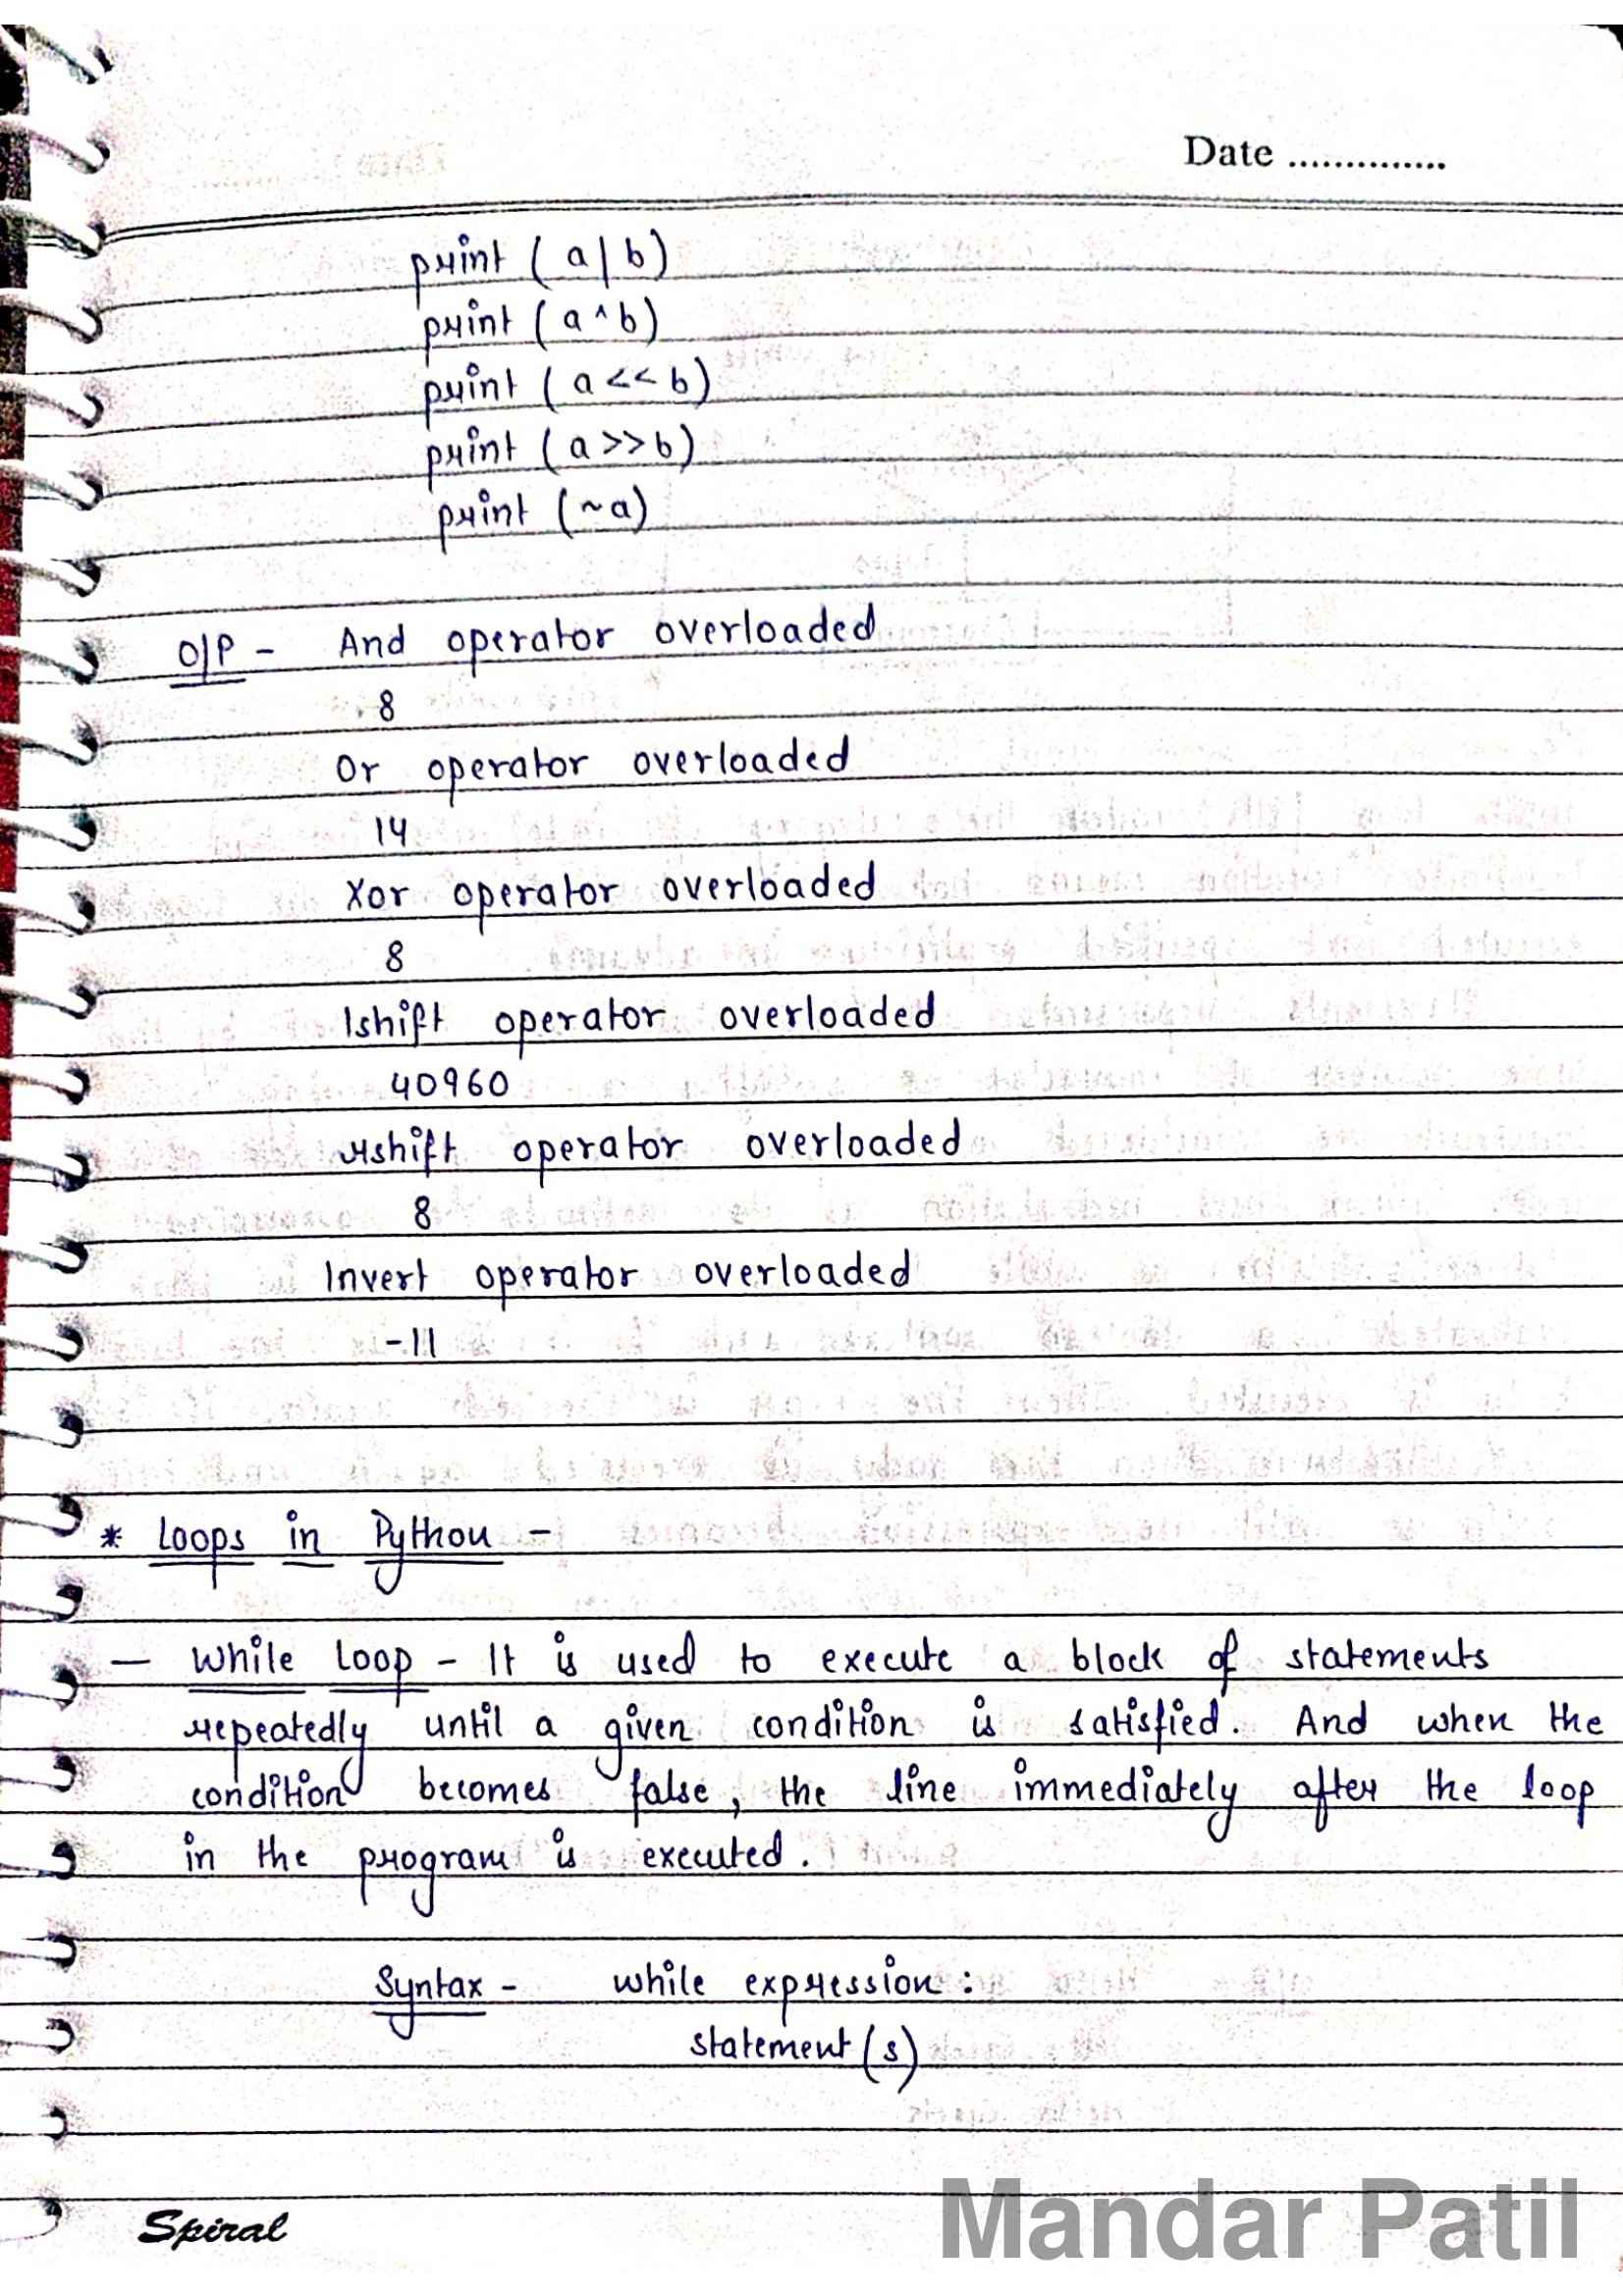 Date ..............
print ( a | b )
print ( a ^ b )
print ( a << b )
print ( a >> b )
print ( ~ a )
O/P - And operator overloaded
8
Or operator overloaded
14
Xor operator overloaded
8
lshift operator overloaded
40960
rshift operator overloaded
8
Invert operator overloaded
-11
* Loops in Python -
— While Loop - It is used to execute a block of statements
repeatedly until a given condition is satisfied. And when the
condition becomes false, the line immediately after the loop
in the program is executed.
Syntax - while expression :
statement (s)
Spiral
Mandar Patil